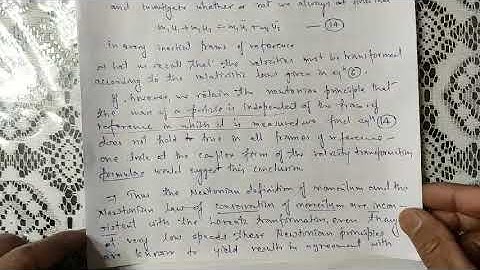 and investigate whether or not we always at first find
m₁u₁ + m₂u₂ = m₁ū₁ + m₂ū₂ — (14)
in every inertial frame of reference
let us recall that the velocities must be transformed
according to the relativistic law given in eqⁿ (6).
If, however, we retain the newtonian principle that
the mass of a particle is independent of the frame of
reference in which it is measured we find eqⁿ (14)
does not hold true in all frames of reference –
one look at the complex form of the velocity transformation
formulas would suggest this conclusion
→ Thus the Newtonian definition of momentum and the
Newtonian law of conservation of momentum are incon-
sistent with the Lorentz transformation, even though
at very low speeds these Newtonian principles
are known to yield results in agreement with